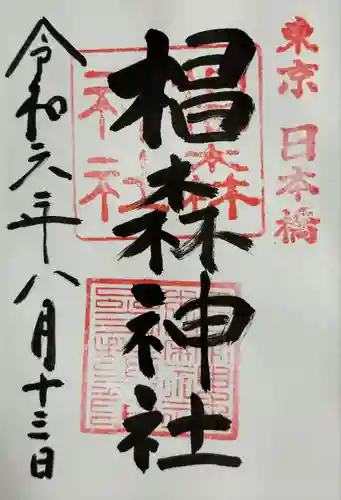 東京 日本橋
椙森神社
令和六年八月十三日